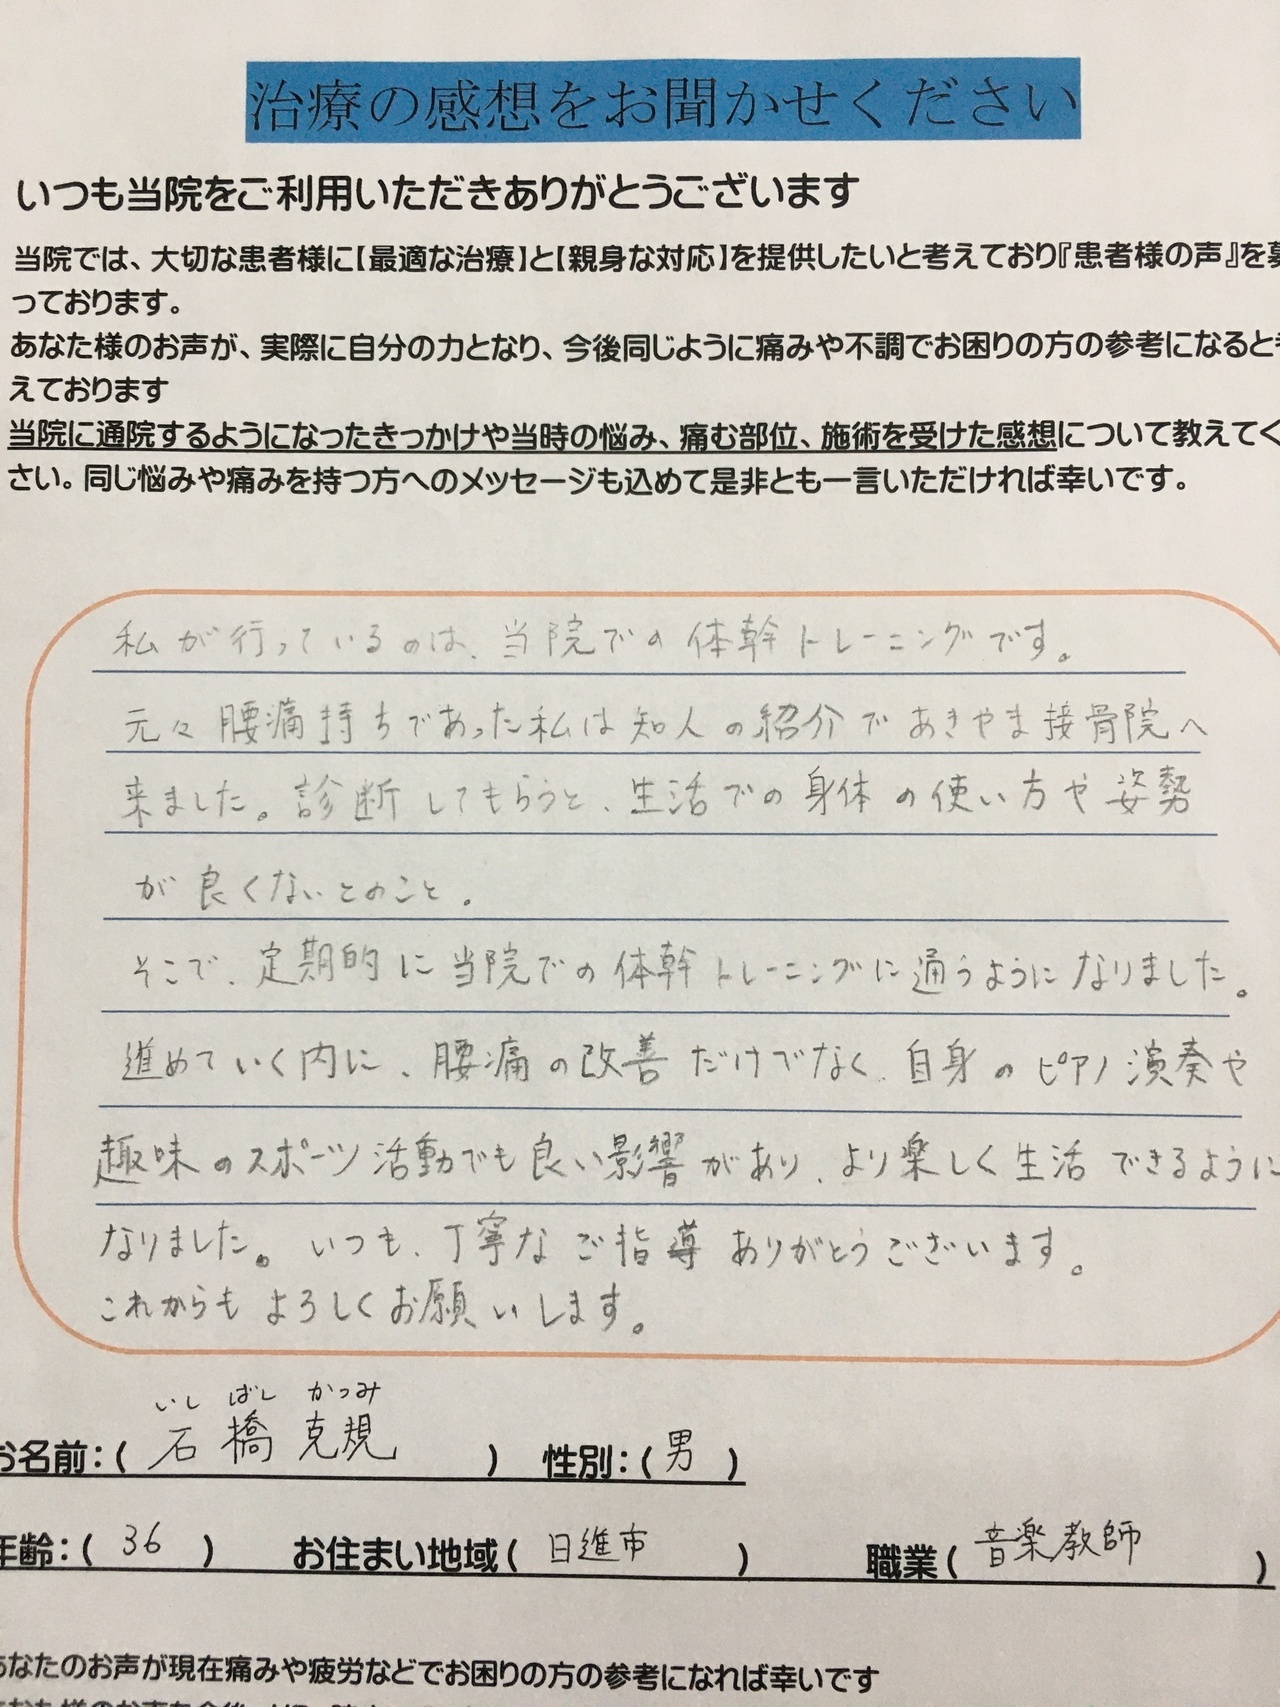 治療の感想をお聞かせください
いつも当院をご利用いただきありがとうございます
当院では、大切な患者様に【最適な治療】と【親身な対応】を提供したいと考えており『患者様の声』を募
っております。
あなた様のお声が、実際に自分の力となり、今後同じように痛みや不調でお困りの方の参考になると考
えております
当院に通院するようになったきっかけや当時の悩み、痛む部位、施術を受けた感想について教えてく
さい。同じ悩みや痛みを持つ方へのメッセージも込めて是非とも一言いただければ幸いです。
私が行っているのは、当院での体幹トレーニングです。
元々腰痛持ちであった私は知人の紹介であきやま接骨院へ
来ました。診断してもらうと、生活での身体の使い方や姿勢
が良くないとのこと。
そこで、定期的に当院での体幹トレーニングに通うようになりました。
進めていく内に、腰痛の改善だけでなく、自身のピアノ演奏や
趣味のスポーツ活動でも良い影響があり、より楽しく生活できるように
なりました。いつも、丁寧なご指導ありがとうございます。
これからもよろしくお願いします。
いし ばし かつみ
お名前：( 石橋 克規 ) 性別：( 男 )
年齢：( 36 ) お住まい地域( 日進市 ) 職業( 音楽教師 )
あなたのお声が現在痛みや疲労などでお困りの方の参考になれば幸いです